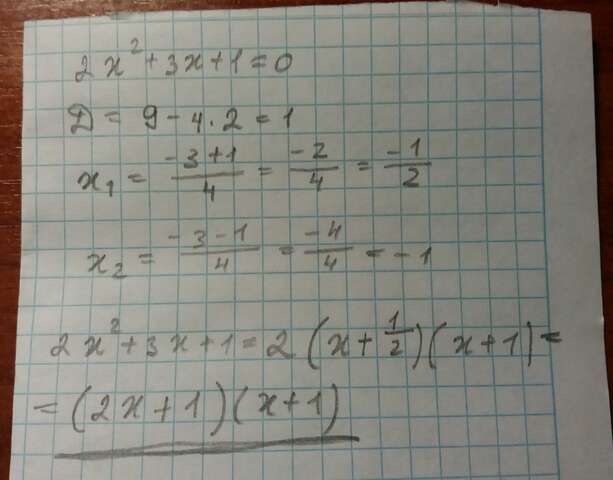 2x² + 3x + 1 = 0
D = 9 - 4 · 2 = 1
x₁ = (-3+1)/4 = (-2)/4 = (-1)/2
x₂ = (-3-1)/4 = (-4)/4 = -1
2x² + 3x + 1 = 2(x + 1/2)(x + 1) =
= (2x + 1)(x + 1)